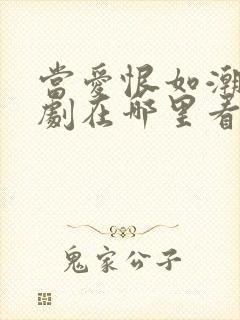 當愛恨如潮
劇在哪里看
鬼家公子